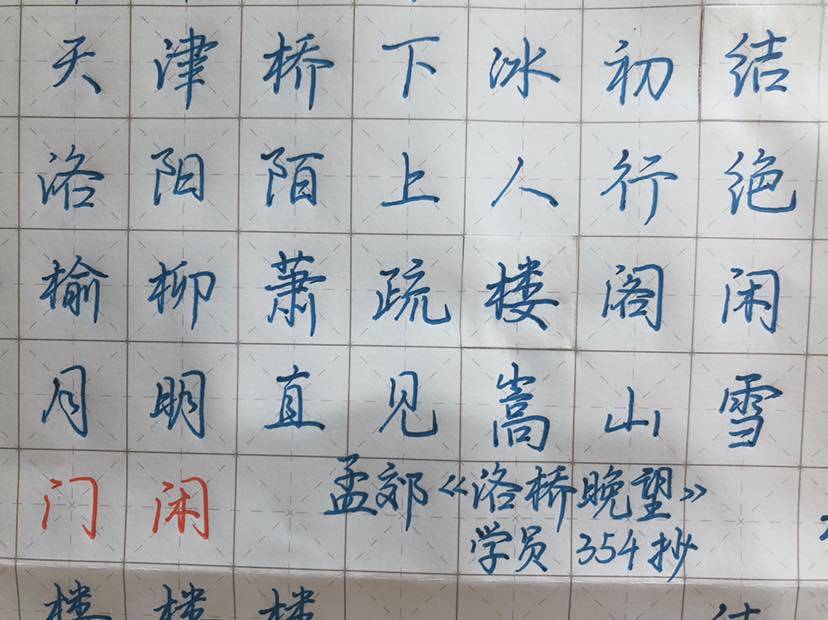 天津桥下冰初结
洛阳陌上人行绝
榆柳萧疏楼阁闲
月明直见嵩山雪
门闲 孟郊《洛桥晚望》
学员 354抄
楼楼楼